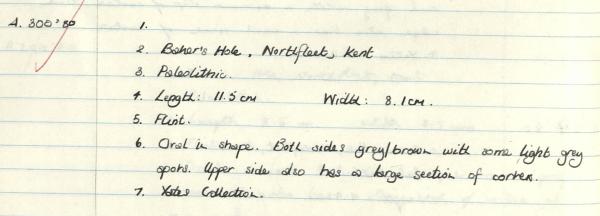 A. 300'50 1.
2. Baker's Hole, Northfleet, Kent
3. Paleolithic.
4. Length: 11.5 cm Width: 8.1cm.
5. Flint.
6. Oval in shape. Both sides grey/brown with some light grey
spots. Upper side also has a large section of cortex.
7. Yates Collection.